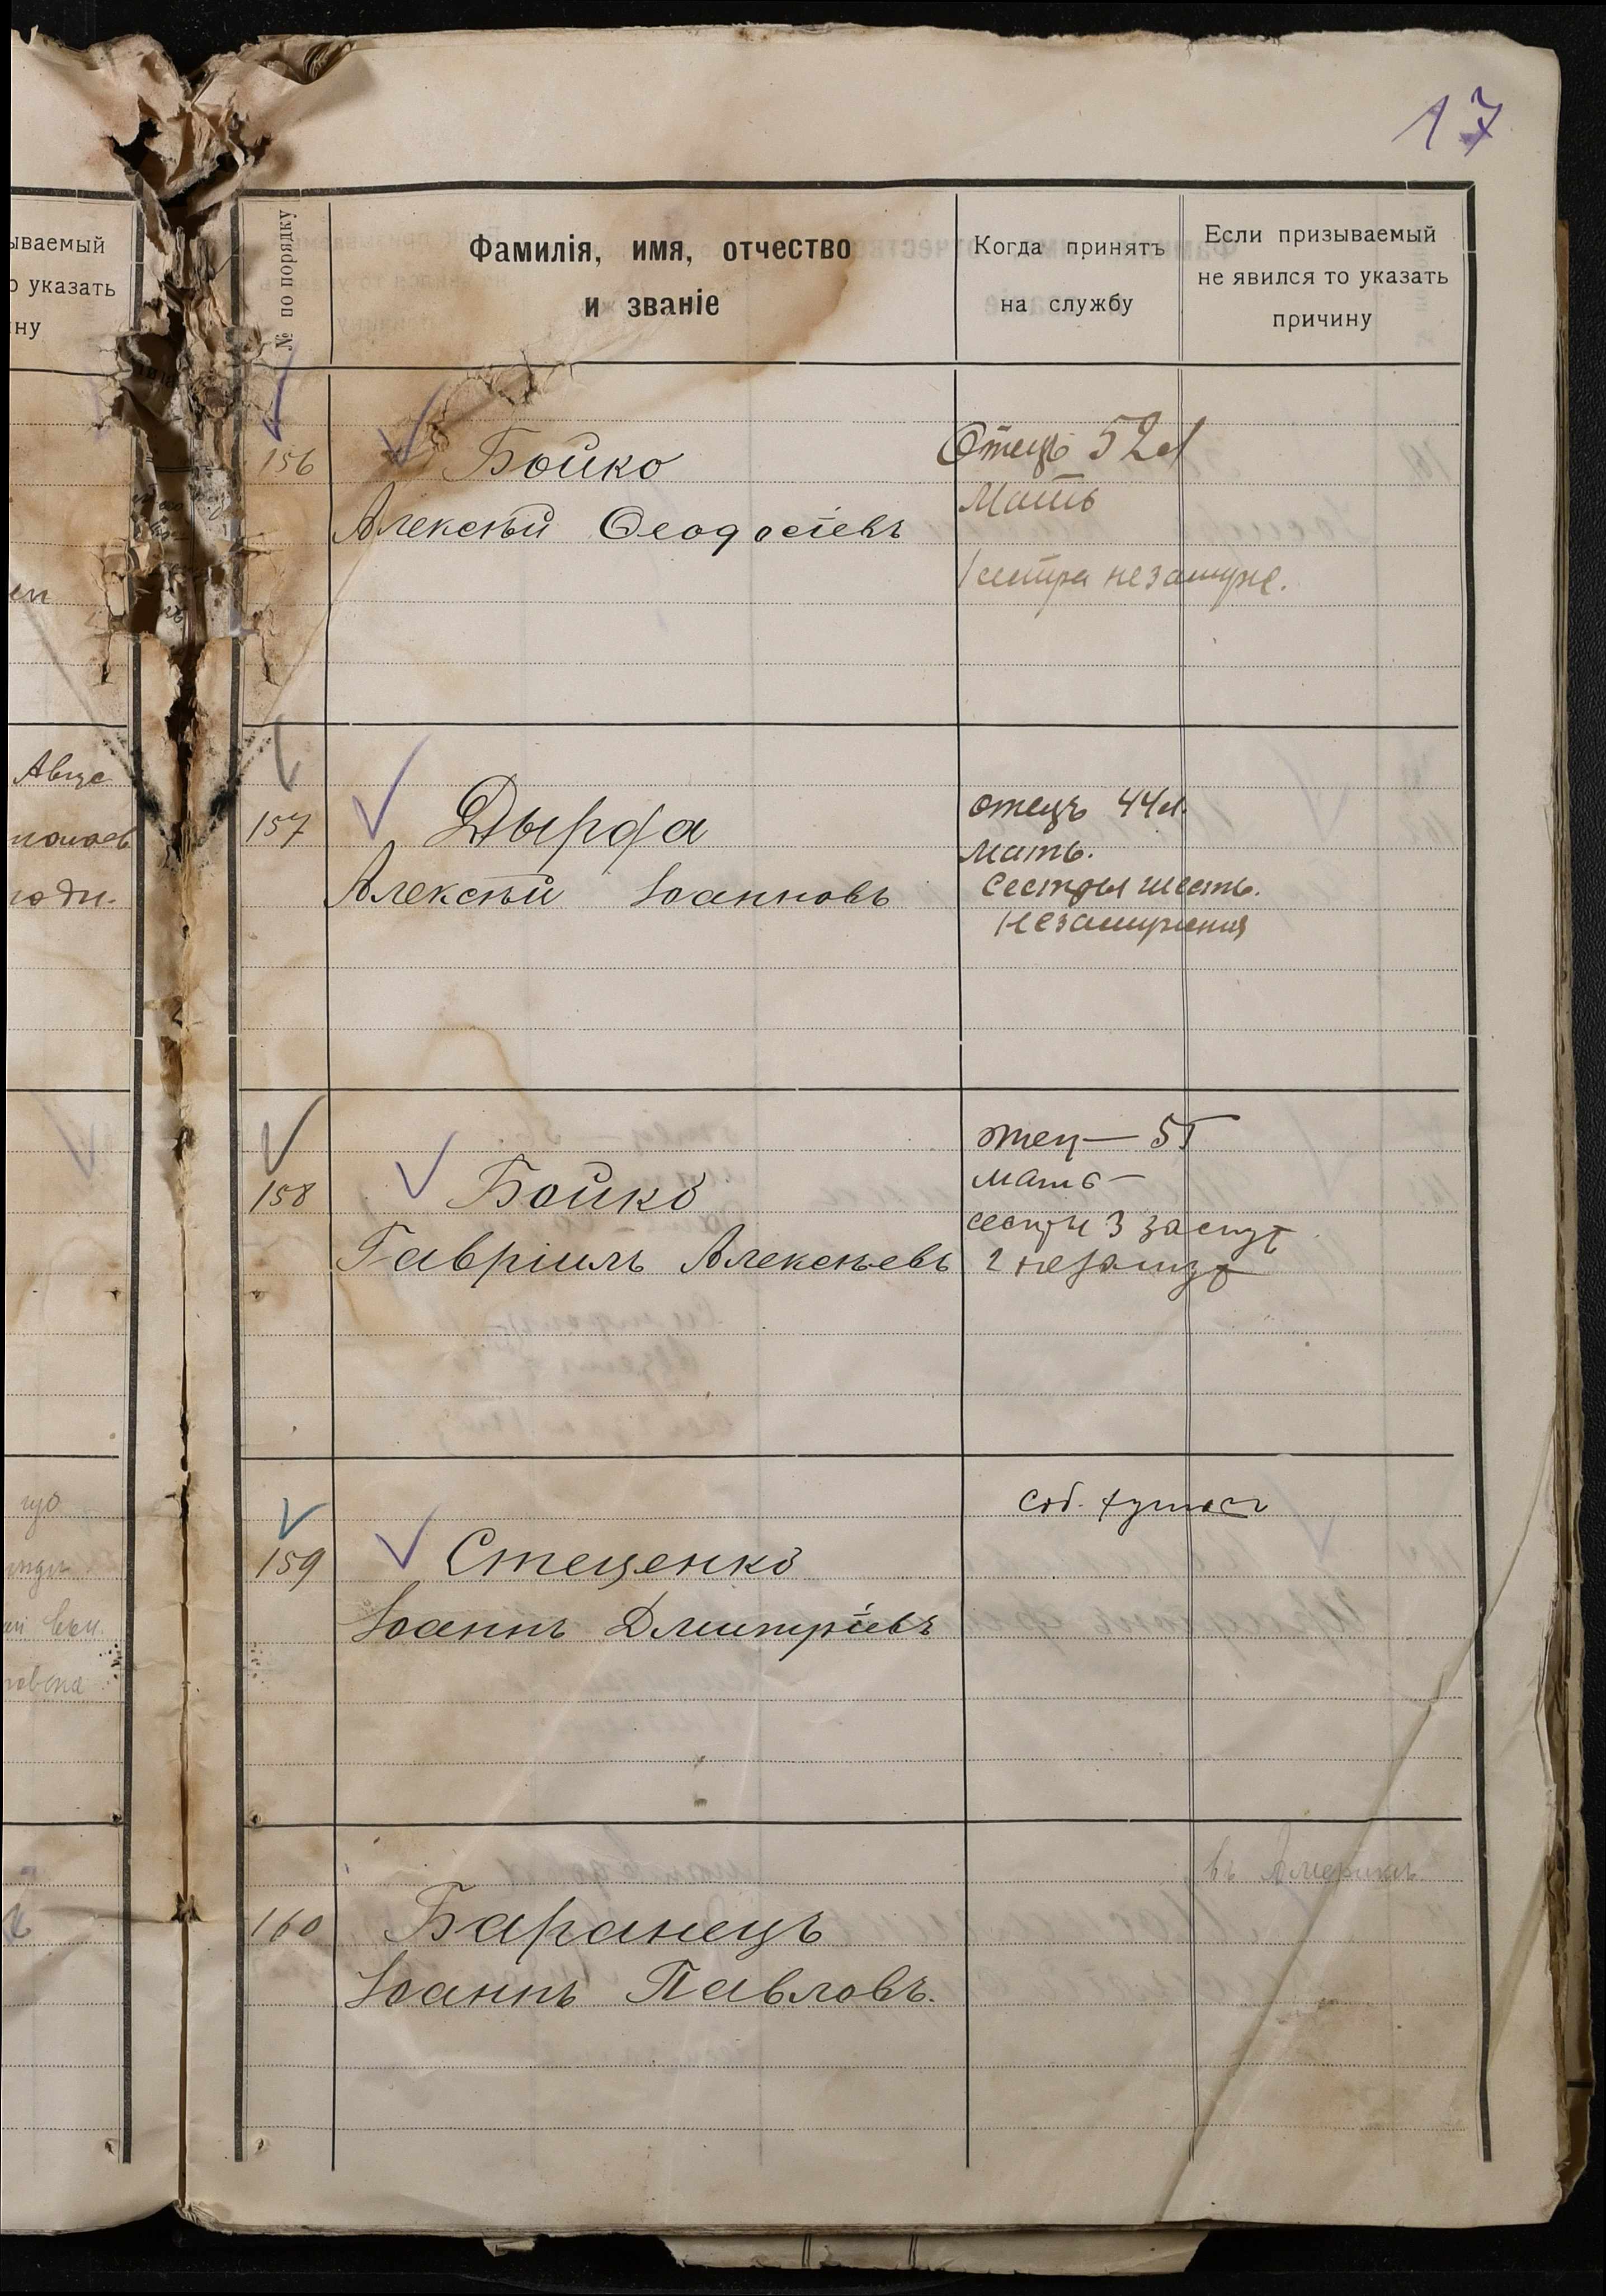 17
ываемый
о указать
ну
Авгус
годи.
№ по порядку
Фамилія, имя, отчество
и званіе
Когда принятъ
на службу
Если призываемый
не явился то указать
причину
156
Бойко
Алексѣй Ѳеодосіевъ
Отецъ 52 л
Мать
сестра незамуже.
157
Дырда
Алексѣй Іоанновъ
отецъ 44 л.
мать.
сестры шесть.
незамужния
158
Бойко
Гавріилъ Алексѣевъ
отец — 55
мать —
сестры 3 замуж
2 незамуж
159
Стеценко
Іоаннъ Дмитріевъ
соб.
160
Баранецъ
Іоаннъ Павловъ.
въ Америкѣ